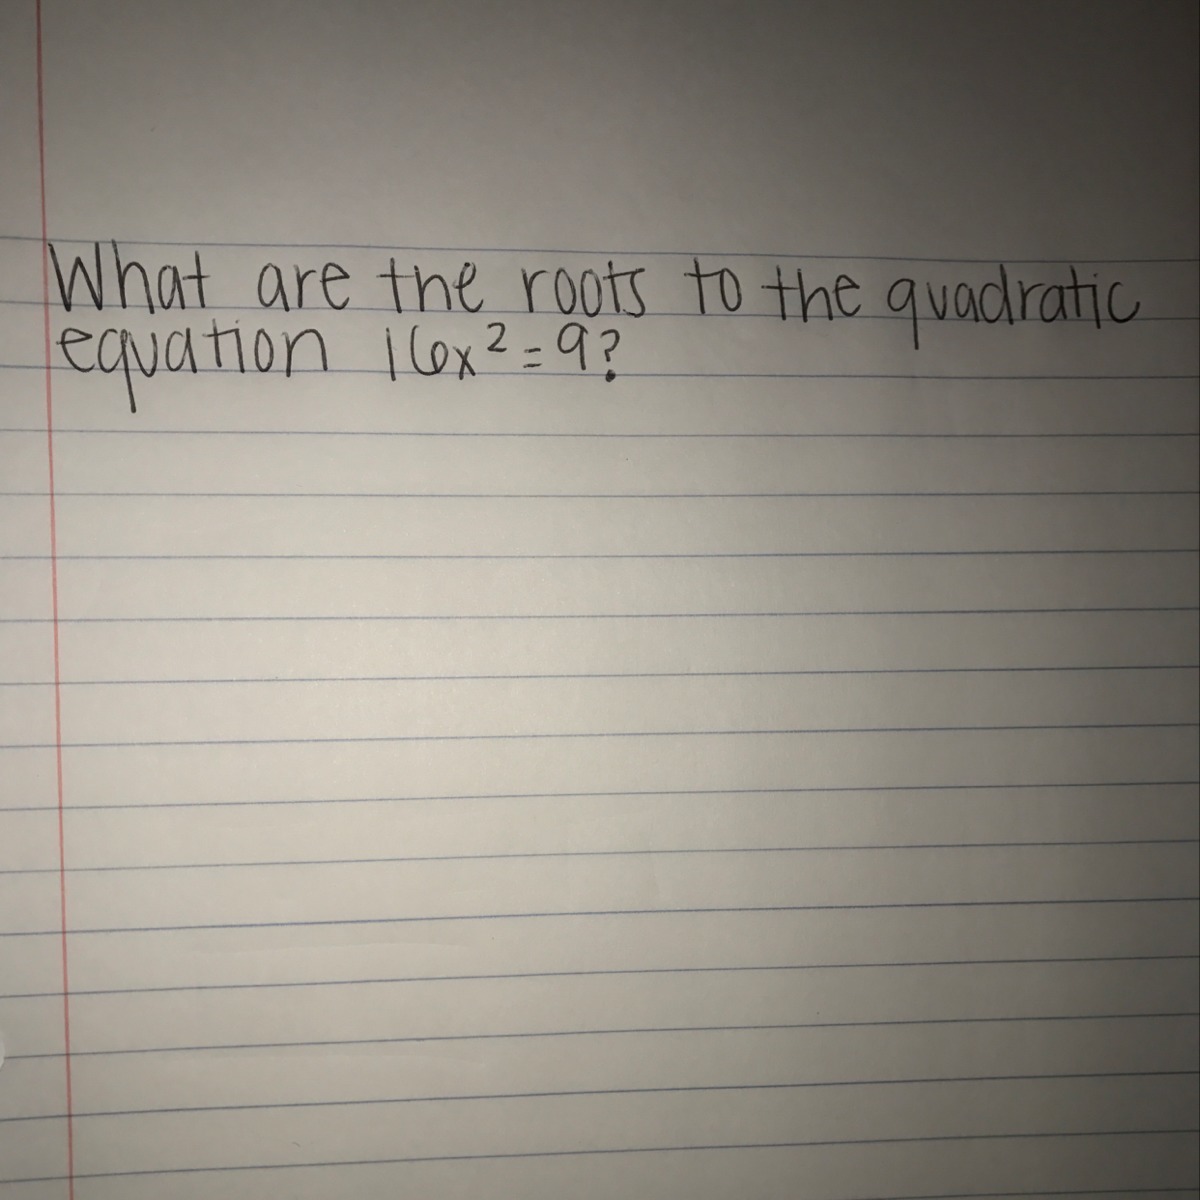 What are the roots to the quadratic
equation 16x²=9?